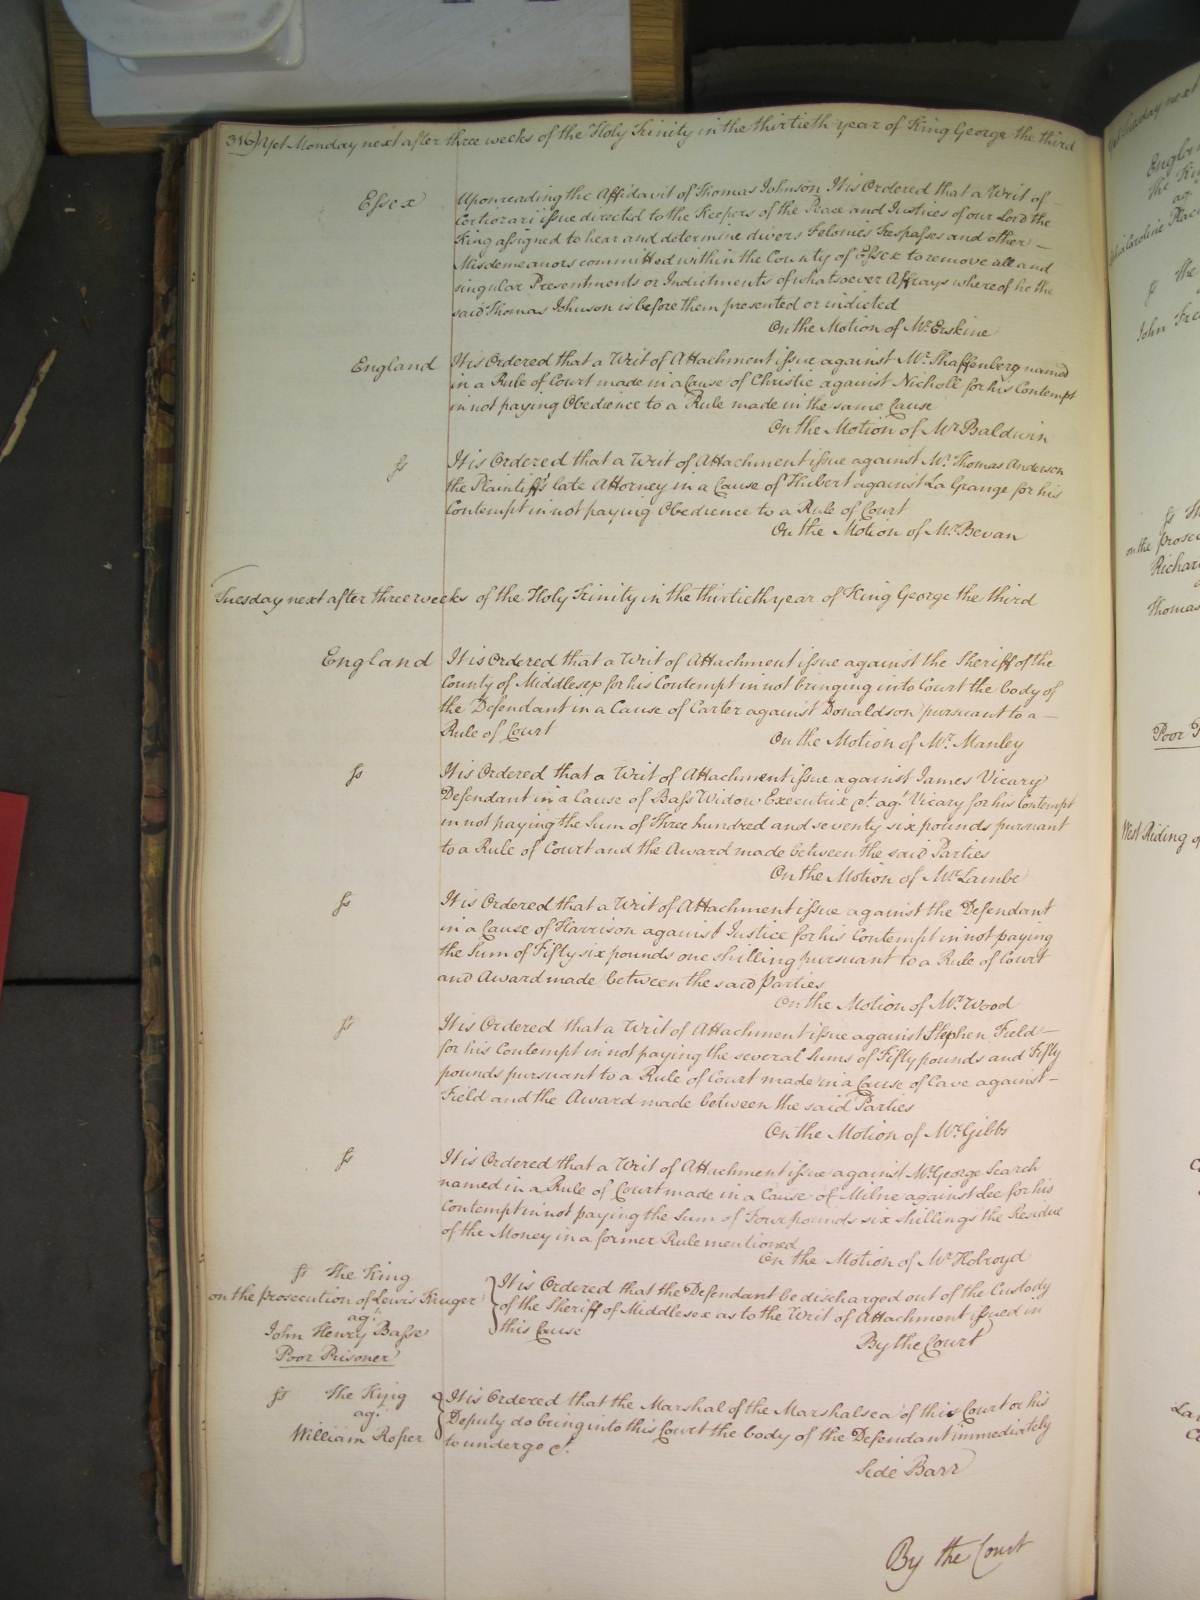 316) Yet Monday next after three weeks of the Holy Trinity in the thirtieth year of King George the third
Essex
Upon reading the Affidavit of Thomas Johnson It is Ordered that a Writ of
Certiorari issue directed to the Keepers of the Peace and Justices of our Lord the
King assigned to hear and determine divers Felonies Trespasses and other
Misdemeanors committed within the County of Essex to remove all and
singular Presentments or Indictments of whatsoever Affrays whereof he the
said Thomas Johnson is before them presented or indicted
On the Motion of Mr. Erskine
England
It is Ordered that a Writ of Attachment issue against Mr. Shaffenberg named
in a Rule of Court made in a Cause of Christie against Nicholl for his Contempt
in not paying Obedience to a Rule made in the same Cause
On the Motion of Mr. Baldwin
ss
It is Ordered that a Writ of Attachment issue against Mr. Thomas Anderson
the Plaintiffs late Attorney in a Cause of Hubert against La Grange for his
Contempt in not paying Obedience to a Rule of Court
On the Motion of Mr. Bevan
Tuesday next after three weeks of the Holy Trinity in the thirtieth year of King George the third
England
It is Ordered that a Writ of Attachment issue against the Sheriff of the
County of Middlesex for his Contempt in not bringing into Court the body of
the Defendant in a Cause of Carter against Donaldson pursuant to a
Rule of Court
On the Motion of Mr. Manley
ss
It is Ordered that a Writ of Attachment issue against James Vicary
Defendant in a Cause of Bass Widow Executrix &c. agt. Vicary for his Contempt
in not paying the Sum of Three hundred and seventy six pounds pursuant
to a Rule of Court and the Award made between the said Parties
On the Motion of Mr. Lambe
ss
It is Ordered that a Writ of Attachment issue against the Defendant
in a Cause of Harrison against Justice for his Contempt in not paying
the Sum of Fifty six pounds one shilling pursuant to a Rule of Court
and Award made between the said Parties
On the Motion of Mr. Wood
ss
It is Ordered that a Writ of Attachment issue against Stephen Field
for his Contempt in not paying the several Sums of Fifty pounds and Fifty
pounds pursuant to a Rule of Court made in a Cause of Cave against
Field and the Award made between the said Parties
On the Motion of Mr. Gibbs
ss
It is Ordered that a Writ of Attachment issue against Mr. George Search
named in a Rule of Court made in a Cause of Milne against Lee for his
Contempt in not paying the Sum of Four pounds six shillings the Residue
of the Money in a former Rule mentioned
On the Motion of Mr. Holroyd
ss The King
on the prosecution of Lewis Kruger
agt.
John Henry Basse
Poor Prisoner
It is Ordered that the Defendant be discharged out of the Custody
of the Sheriff of Middlesex as to the Writ of Attachment issued in
this Cause
By the Court
ss The King
agt.
William Roper
It is Ordered that the Marshal of the Marshalsea of this Court or his
Deputy do bring into this Court the body of the Defendant immediately
to undergo &c.
Side Barr
By the Court
ss
John
on the
Thomas
Poor
West Riding of